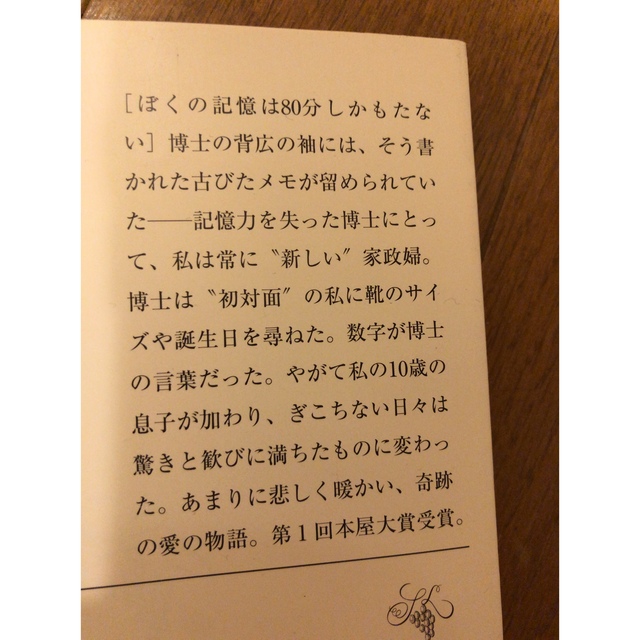 [ぼくの記憶は80分しかもたな
い] 博士の背広の袖には、そう書
かれた古びたメモが留められてい
た――記憶力を失った博士にとっ
て、私は常に〝新しい〟家政婦。
博士は〝初対面〟の私に靴のサイ
ズや誕生日を尋ねた。数字が博士
の言葉だった。やがて私の10歳の
息子が加わり、ぎこちない日々は
驚きと歓びに満ちたものに変わっ
た。あまりに悲しく暖かい、奇跡
の愛の物語。第1回本屋大賞受賞。